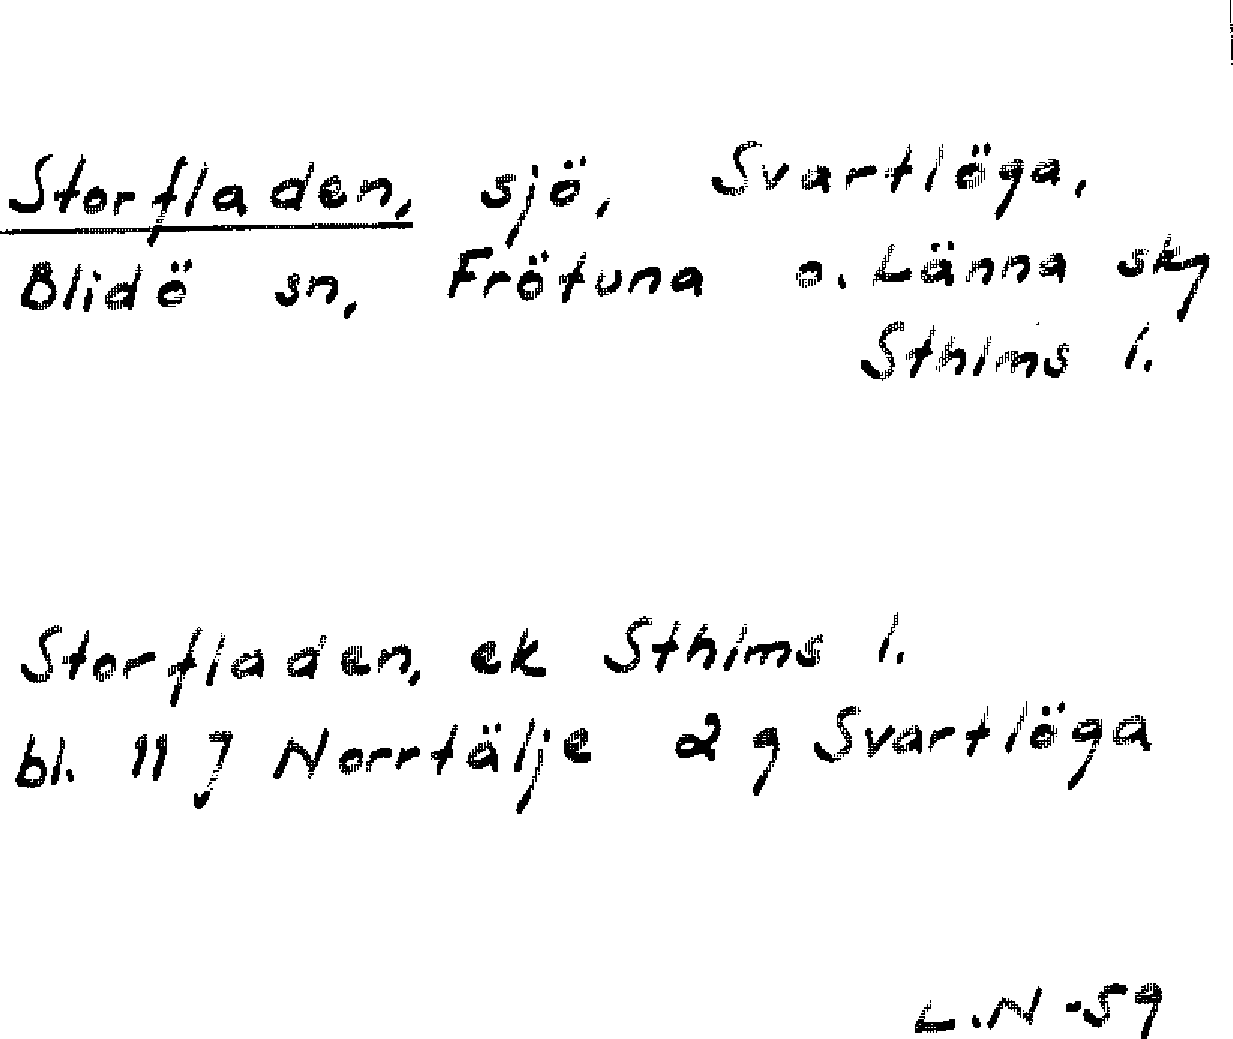 Storfladen, sjö, Svartlöga,
Blidö sn, Frötuna o. Länna skg
Sthlms l.
Storfladen, ek Sthlms l.
bl. 11 J Norrtälje 2 g Svartlöga
L.N -59